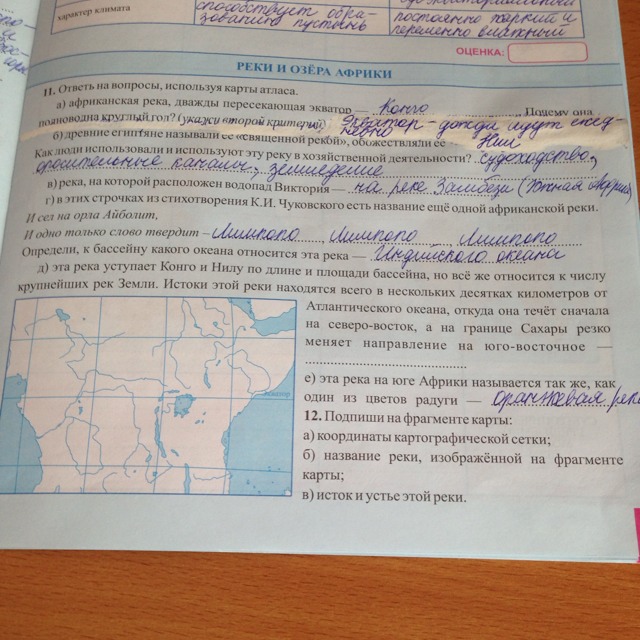 характер климата
способствует обра-
зованию пустынь
постоянно жаркий и
переменно влажный
ОЦЕНКА:
РЕКИ И ОЗЁРА АФРИКИ
11. Ответь на вопросы, используя карты атласа.
а) африканская река, дважды пересекающая экватор — Конго. Почему она
полноводна круглый год? (укажи второй критерий) Экватор - дожди идут ежед-
невно
б) древние египтяне называли её «священной рекой», обожествляли её — Нил
Как люди использовали и используют эту реку в хозяйственной деятельности? судоходство,
оросительные каналы, земледелие
в) река, на которой расположен водопад Виктория — на реке Замбези (Южная Африка)
г) в этих строчках из стихотворения К.И. Чуковского есть название ещё одной африканской реки.
И сел на орла Айболит,
И одно только слово твердит – Лимпопо, Лимпопо, Лимпопо
Определи, к бассейну какого океана относится эта река — Индийского океана
д) эта река уступает Конго и Нилу по длине и площади бассейна, но всё же относится к числу
крупнейших рек Земли. Истоки этой реки находятся всего в нескольких десятках километров от
Атлантического океана, откуда она течёт сначала
на северо-восток, а на границе Сахары резко
меняет направление на юго-восточное —
е) эта река на юге Африки называется так же, как
один из цветов радуги — оранжевая река
12. Подпиши на фрагменте карты:
а) координаты картографической сетки;
б) название реки, изображённой на фрагменте
карты;
в) исток и устье этой реки.